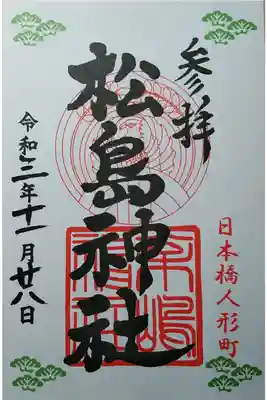 参拝
松島神社
日本橋人形町
令和三年十一月廿八日